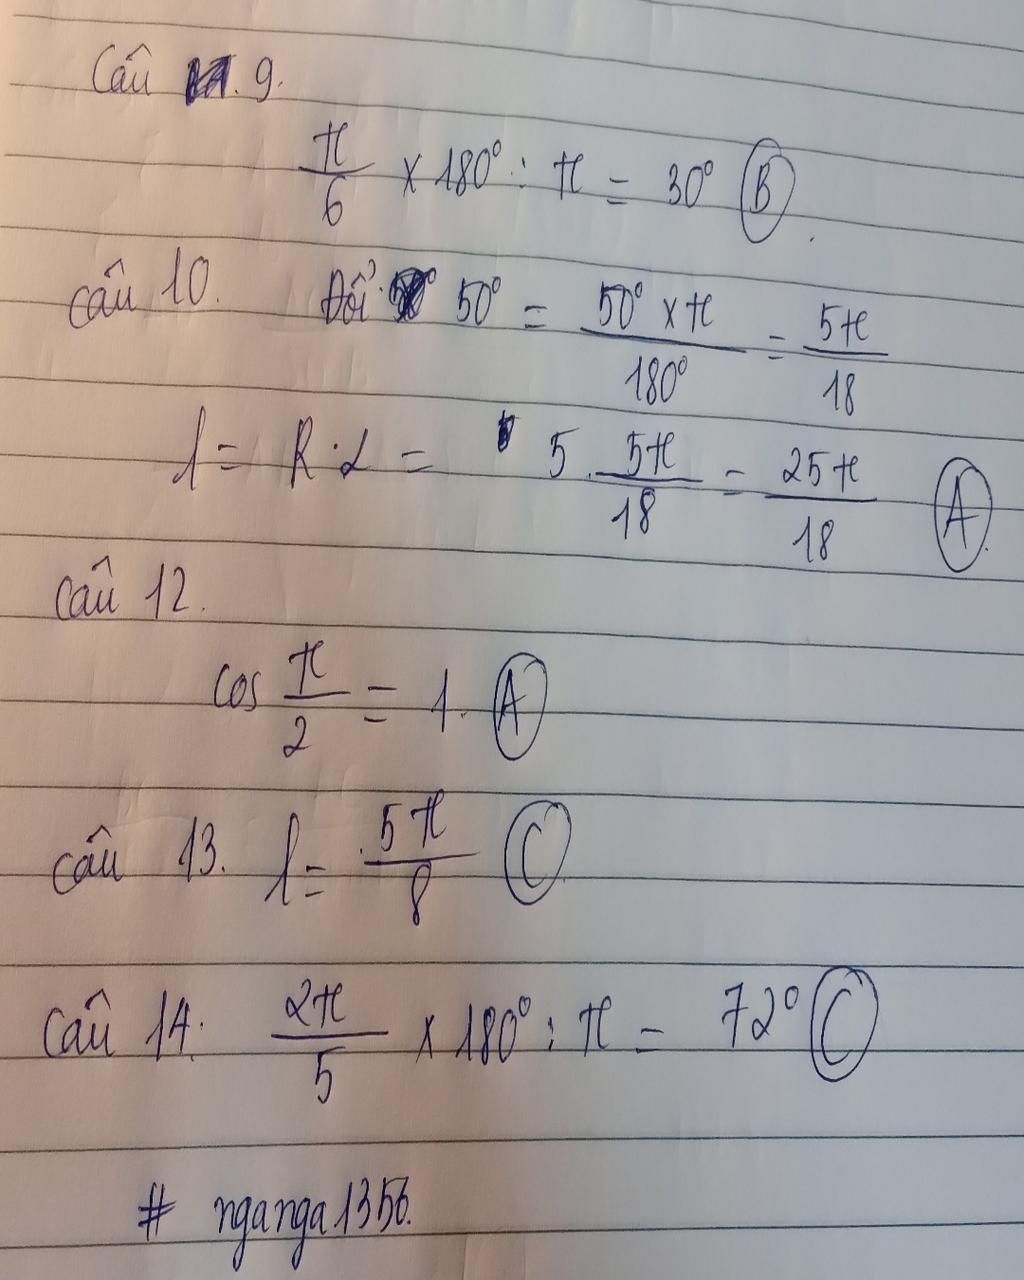 Câu 9.
π/6 x 180° : π = 30° B
Câu 10. Đổi 50° = 50° x π / 180° = 5π/18
l = R.α = 5. 5π/18 = 25π/18 A.
Câu 12.
cos π/2 = 1. A
Câu 13. l = 5π/8 C
Câu 14: 2π/5 x 180° : π = 72° C
# nganga1356.